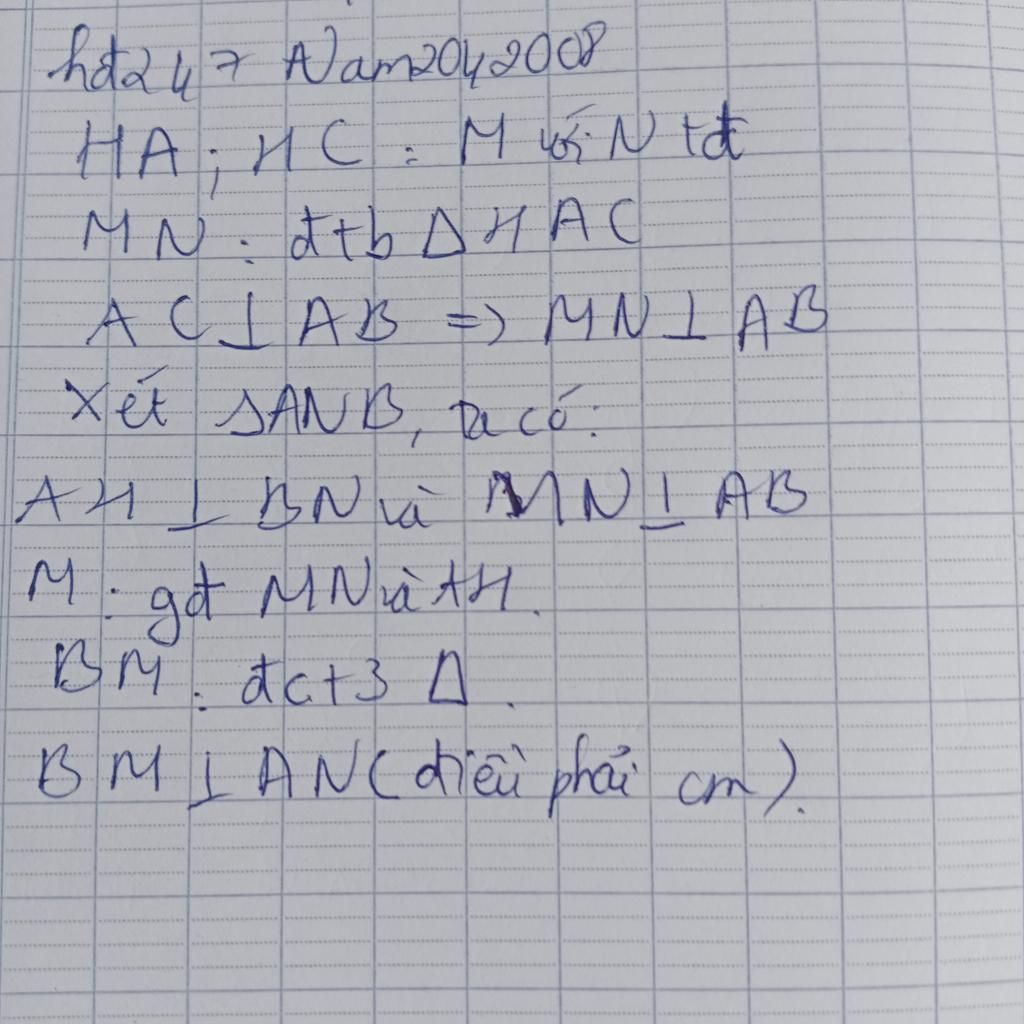 hđ247 Nam2042008
HA; HC: M với N tđ
MN: đtb Δ HAC
AC ⊥ AB => MN ⊥ AB
Xét ΔANB, ta có:
AH ⊥ BN và MN ⊥ AB
M: gđ MN và AH.
BM: đct3 Δ.
BM ⊥ AN (điều phải cm).